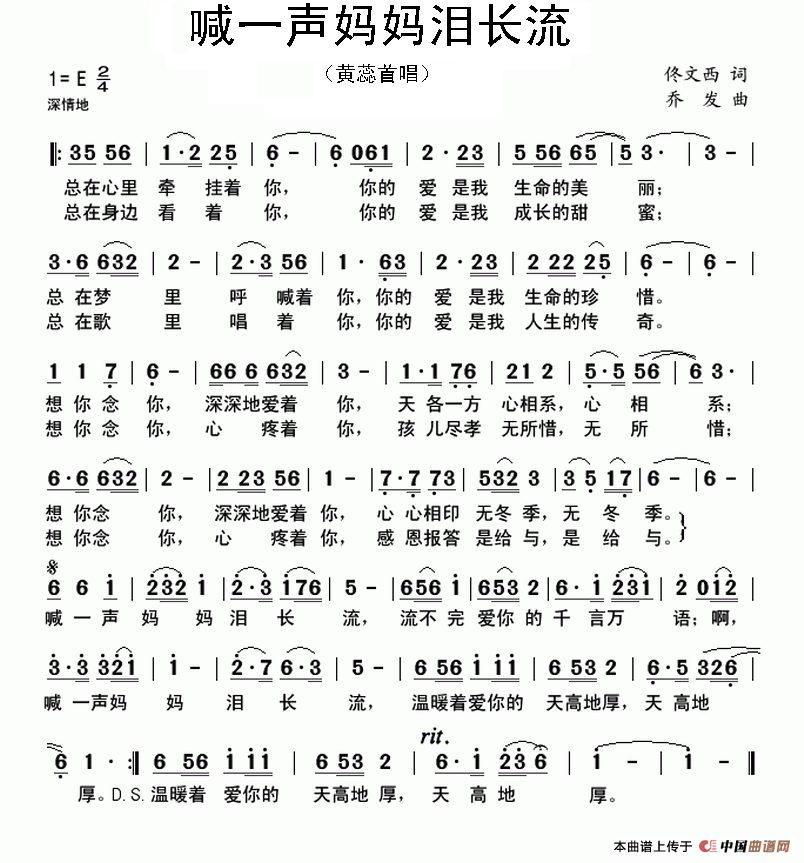 喊一声妈妈泪长流
（黄蕊首唱）
1= E 2/4
深情地
佟文西 词
乔 发 曲
‖: 35 56 | 1·2 25 | 6 - | 6 061 | 2·23 | 5 56 65 | 5 3· | 3 - |
总在心里 牵 挂着 你， 你的 爱 是我 生命的美 丽；
总在身边 看 着 你， 你的 爱 是我 成长的甜 蜜；
3·6 632 | 2 - | 2·3 56 | 1· 63 | 2·23 | 2 22 25 | 6 - | 6 - |
总 在梦 里 呼 喊着 你，你的 爱 是我 生命的珍 惜。
总 在歌 里 唱 着 你，你的 爱 是我 人生的传 奇。
1 1 7 | 6 - | 66 6 632 | 3 - | 1·1 76 | 212 | 5·5 56 | 6 3· |
想 你 念 你， 深深地爱着 你， 天 各一方 心相系，心 相 系；
想 你 念 你， 心 疼着 你， 孩 儿尽孝 无所惜，无 所 惜；
6·6 632 | 2 - | 2 23 56 | 1 - | 7·7 73 | 532 3 | 3 5 17 | 6 - | 6 - |
想 你念 你， 深深地爱着 你， 心 心相印 无冬 季，无 冬 季。
想 你念 你， 心 疼着 你， 感 恩报答 是给 与，是 给 与。
6 6 1 | 232 1 | 2·3 176 | 5 - | 656 1 | 653 2 | 6·1 231 | 2 012 |
喊 一 声 妈 妈 泪 长 流， 流不 完 爱你 的 千 言万 语；啊，
3·3 321 | 1 - | 2·7 6·3 | 5 - | 6 56 1 11 | 6 53 2 | 6·5 326 |
喊 一声妈 妈 泪 长 流， 温暖着爱你的 天高地厚，天 高地
rit.
6 1· :‖ 6 56 1 11 | 6 53 2 | 6·1 236 | 1 - | 1 - ‖
厚。D.S.温暖着 爱你的 天高地 厚， 天 高 地 厚。
本曲谱上传于 中国曲谱网